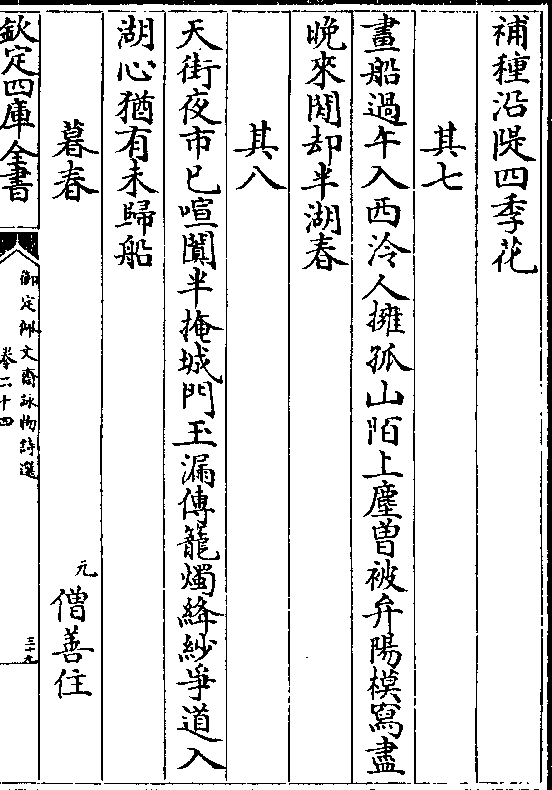 補種沿隄四季花
其七
畫船過午入西泠人擁孤山陌上塵曽被弁陽模寫盡
晚來閒却半湖春
其八
天街夜市已喧闐半掩城門玉漏傳籠燭絳紗爭道入
湖心猶有未歸船
暮春
元
僧善住
欽定四庫全書
御定佩文齋詠物詩選
卷二十四
三十九